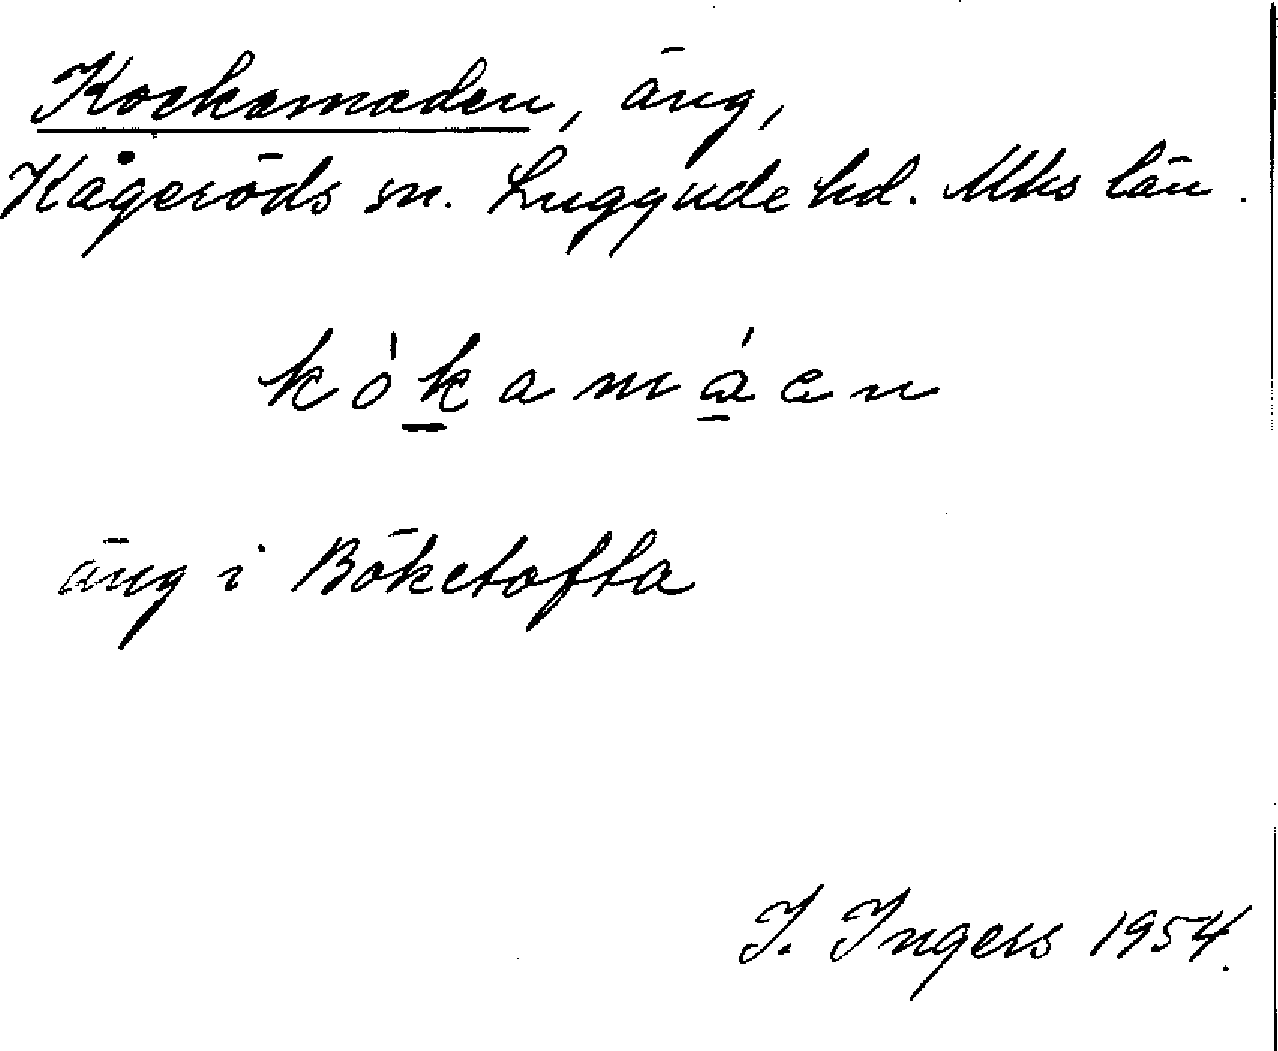 Kockamaden, äng,
Kågeröds sn. Luggude hd. Mhs län.
kókamáen
äng i Böketofta
I. Ingers 1954.